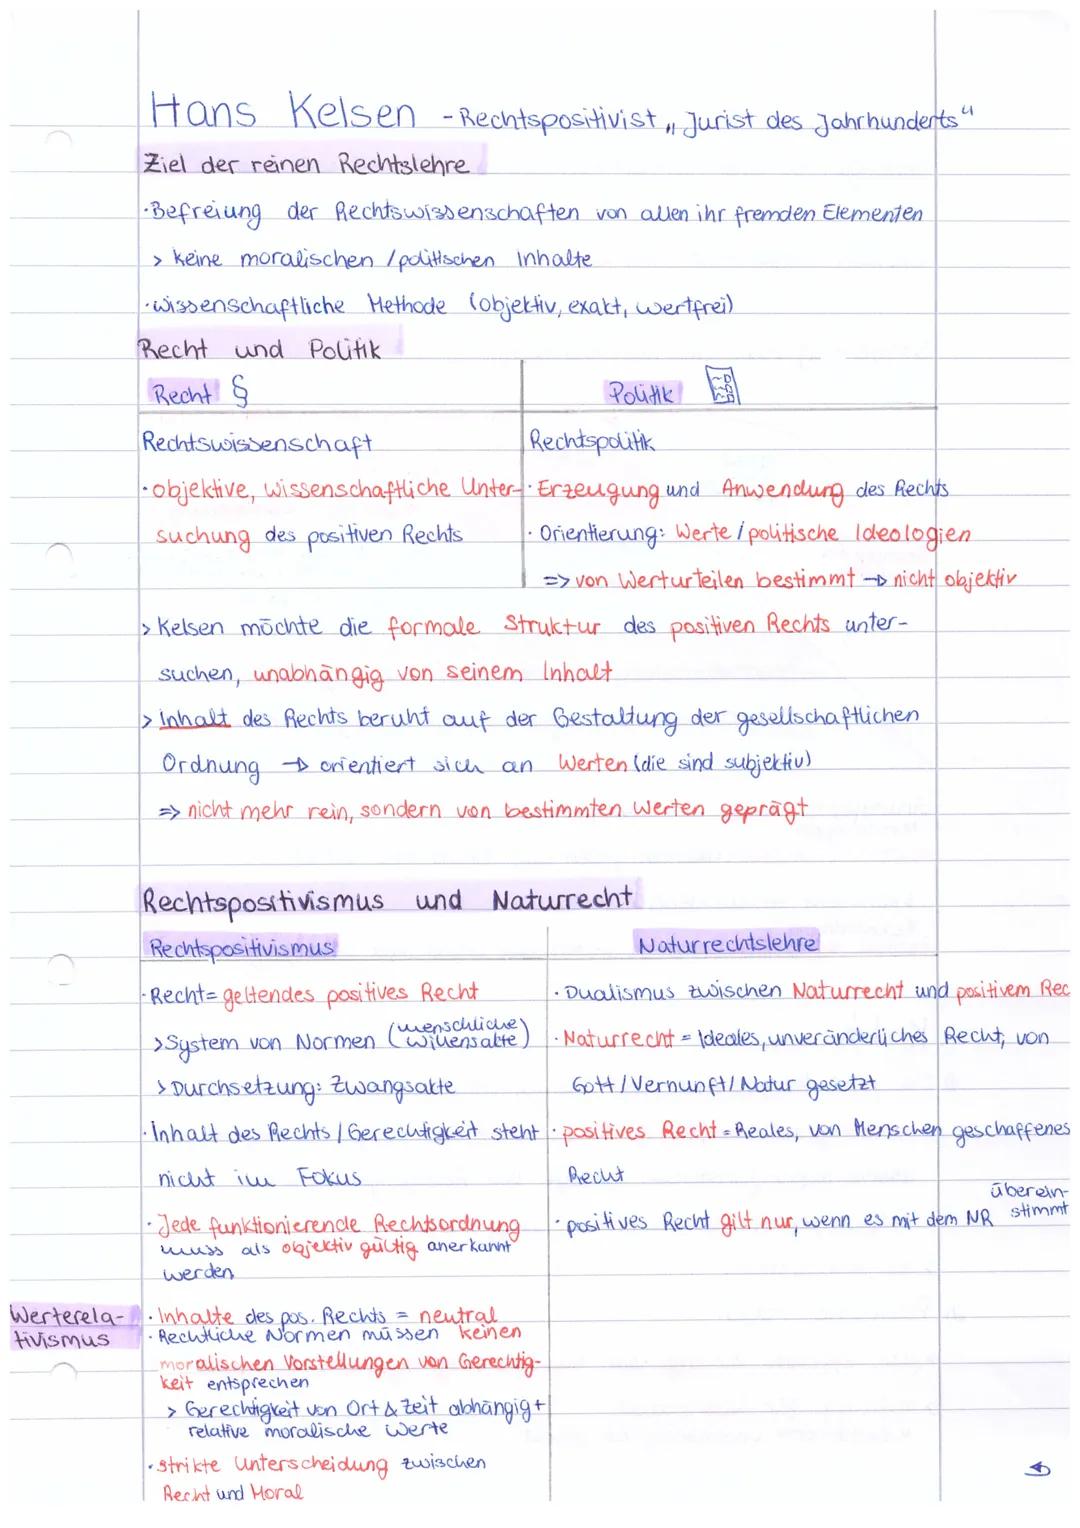 Hans Kelsen - Rechtspositivist „Jurist des Jahrhunderts“
Ziel der reinen Rechtslehre
·Befreiung der Rechtswissenschaften von allen ihr fremden Elementen
> keine moralischen / politischen Inhalte
·wissenschaftliche Methode (objektiv, exakt, wertfrei)
Recht und Politik
Recht §
Politik
Rechtswissenschaft
·objektive, wissenschaftliche Unter-
suchung des positiven Rechts
Rechtspolitik
·Erzeugung und Anwendung des Rechts
·Orientierung: Werte / politische Ideologien
=> von Werturteilen bestimmt → nicht objektiv
> Kelsen möchte die formale Struktur des positiven Rechts unter-
suchen, unabhängig von seinem Inhalt
> Inhalt des Rechts beruht auf der Gestaltung der gesellschaftlichen
Ordnung → orientiert sich an Werten (die sind subjektiv)
=> nicht mehr rein, sondern von bestimmten Werten geprägt
Rechtspositivismus und Naturrecht
Rechtspositivismus
·Recht = geltendes positives Recht
> System von Normen (menschliche
Willensakte)
> Durchsetzung: Zwangsakte
·Inhalt des Rechts / Gerechtigkeit steht
nicht im Fokus
·Jede funktionierende Rechtsordnung
muss als objektiv gültig anerkannt
werden
Werterela-
tivismus
·Inhalte des pos. Rechts = neutral
·Rechtliche Normen müssen keinen
moralischen Vorstellungen von Gerechtig-
keit entsprechen
> Gerechtigkeit von Ort & Zeit abhängig +
relative moralische Werte
·strikte Unterscheidung zwischen
Recht und Moral
Naturrechtslehre
·Dualismus zwischen Naturrecht und positivem Rec
·Naturrecht = Ideales, unveränderliches Recht, von
Gott / Vernunft / Natur gesetzt
·positives Recht = Reales, von Menschen geschaffenes
Recht
·positives Recht gilt nur, wenn es mit dem NR überein-
stimmt